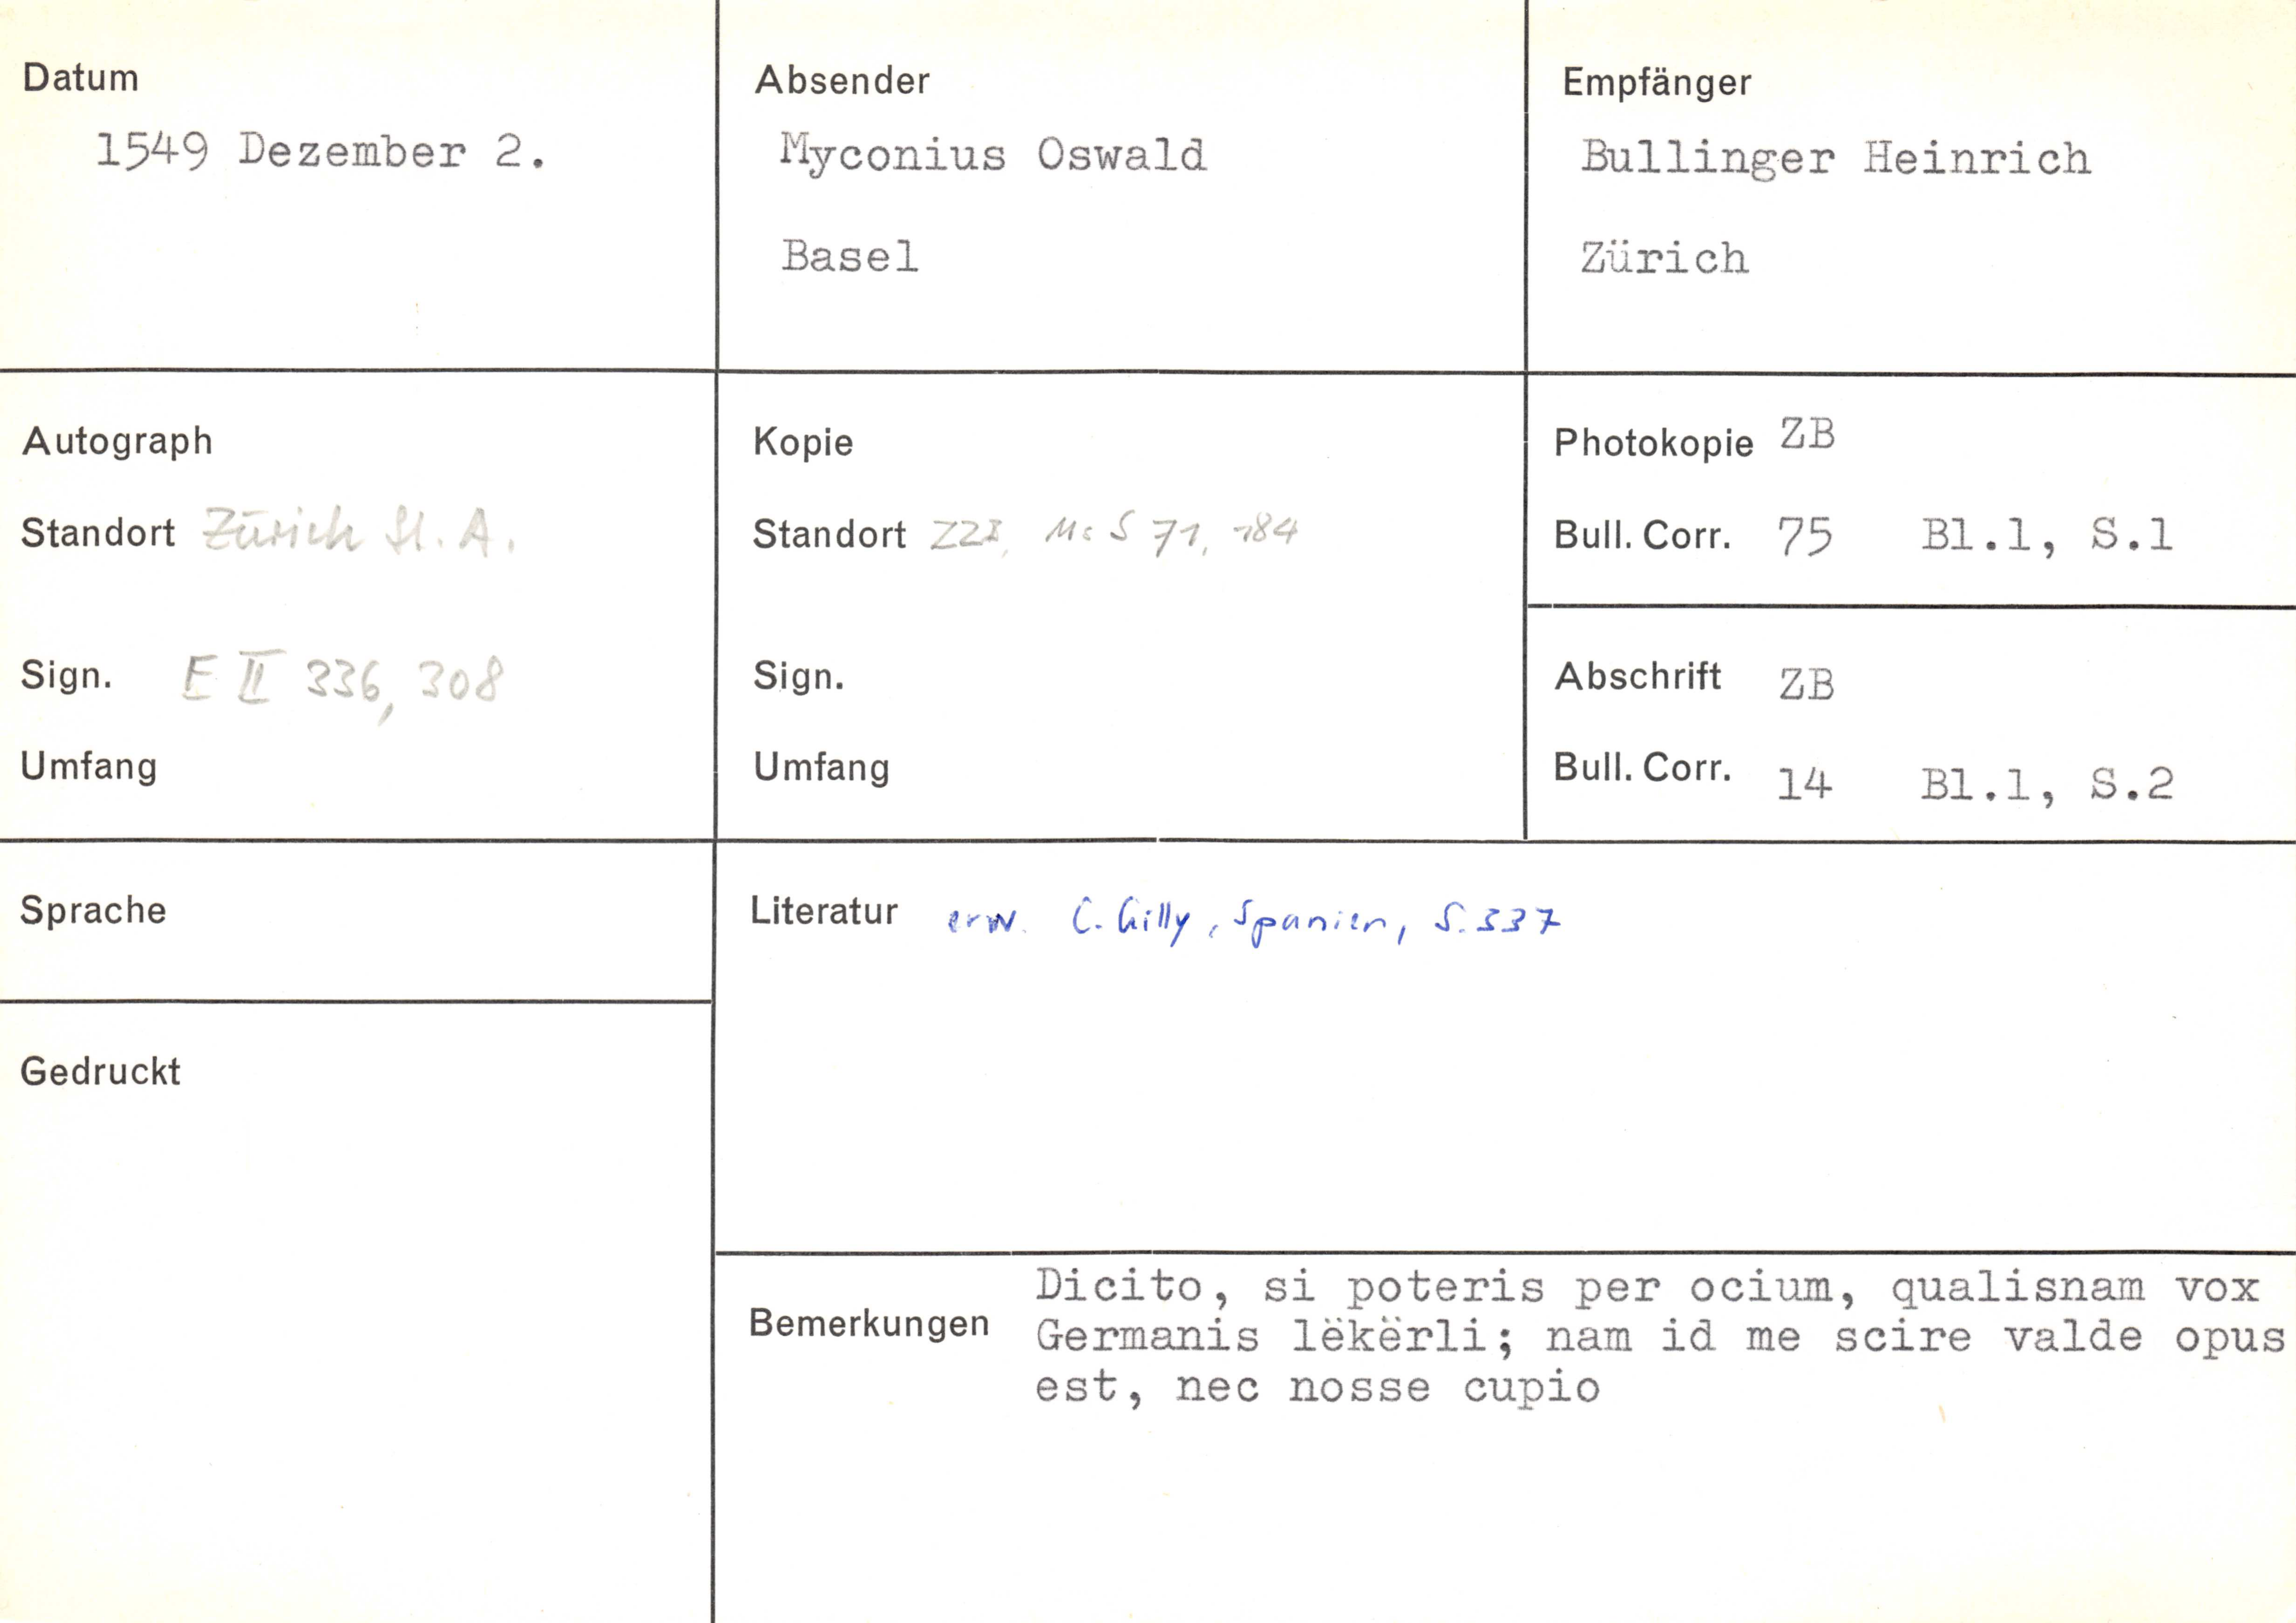 Datum
1549 Dezember 2.
Absender
Myconius Oswald
Basel
Empfänger
Bullinger Heinrich
Zürich
Autograph
Standort Zürich St. A.
Sign. E II 336, 308
Umfang
Kopie
Standort ZZB, Ms S 71, 184
Sign.
Umfang
Photokopie ZB
Bull. Corr. 75 Bl.1, S.1
Abschrift ZB
Bull. Corr. 14 Bl.1, S.2
Sprache
Gedruckt
Literatur erw. C. Gilly, Spanien, S. 337
Bemerkungen
Dicito, si poteris per ocium, qualisnam vox
Germanis lëkërli; nam id me scire valde opus
est, nec nosse cupio